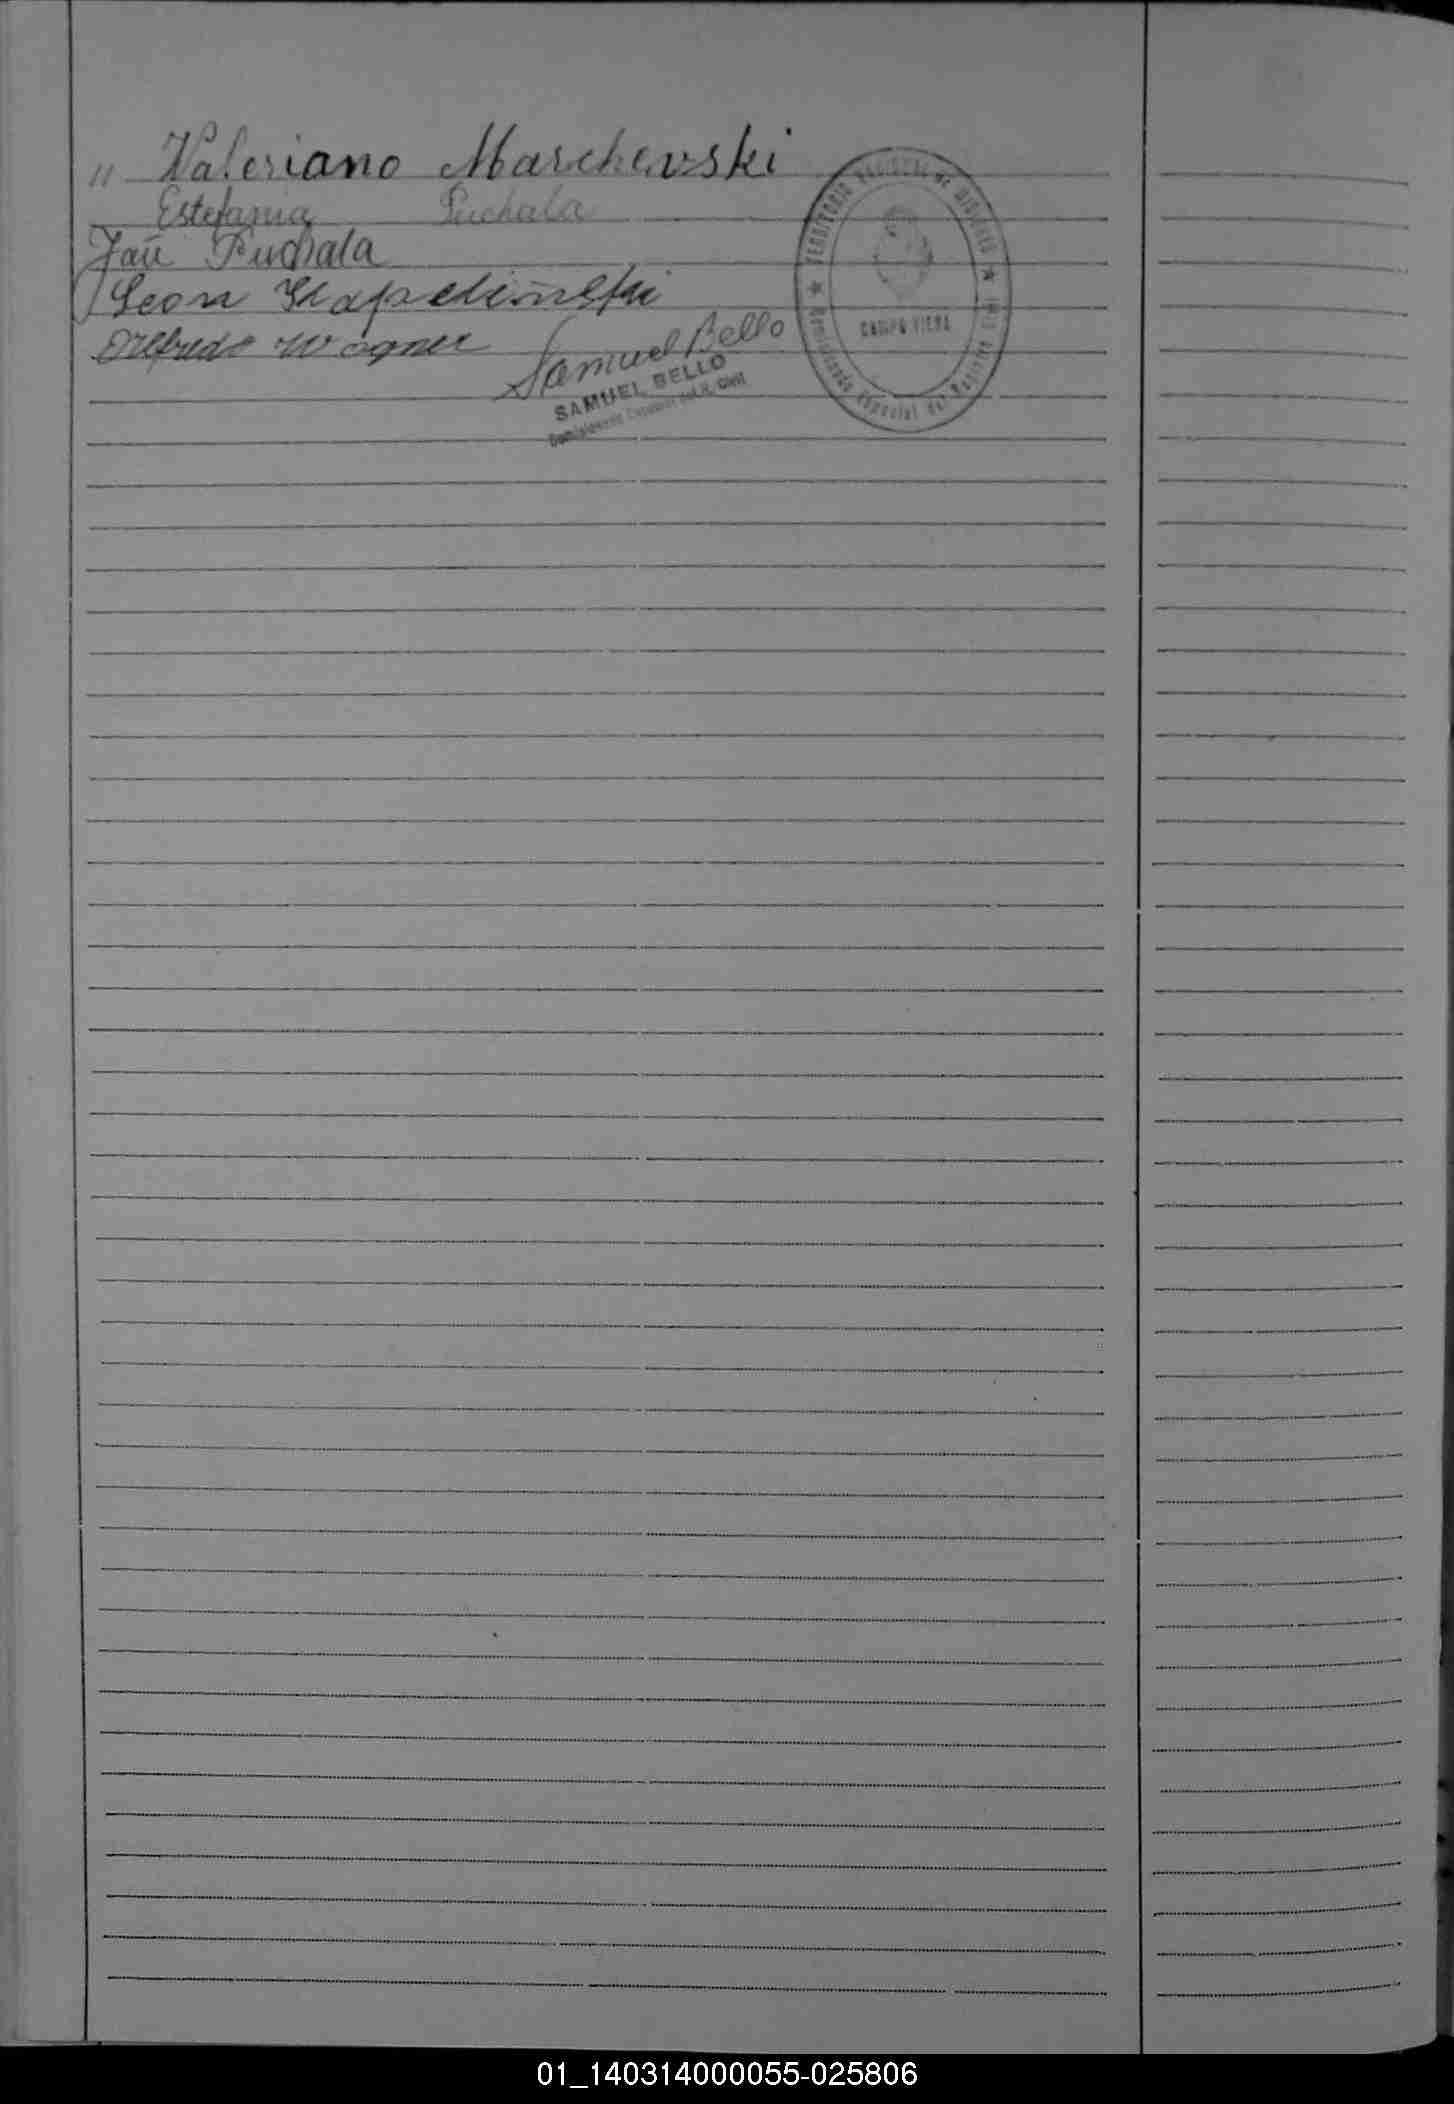 " Valeriano Marchevski
Estefania Puchala
Jan Puchala
Leon
Alfredo Wagner
Samuel Bello
SAMUEL BELLO
Comisionado Especial del R. Civil
★ TERRITORIO NACIONAL DE MISIONES ★
CAMPO VIERA
Comisionado Especial del Registro Civil
01_140314000055-025806